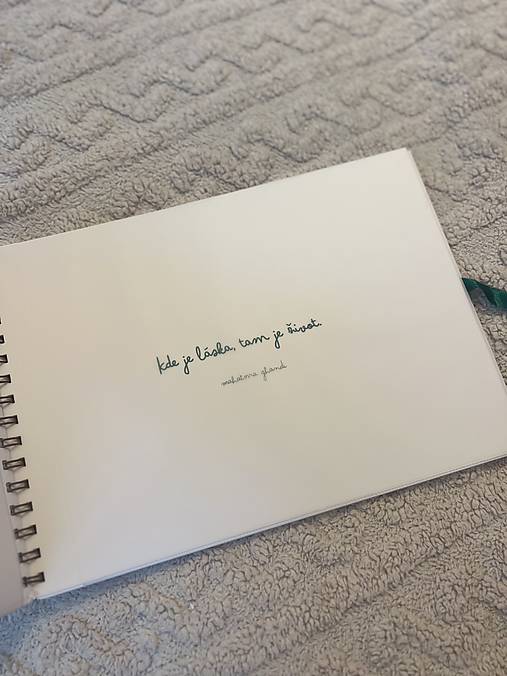 kde je láska, tam je život.
mahatma ghandi